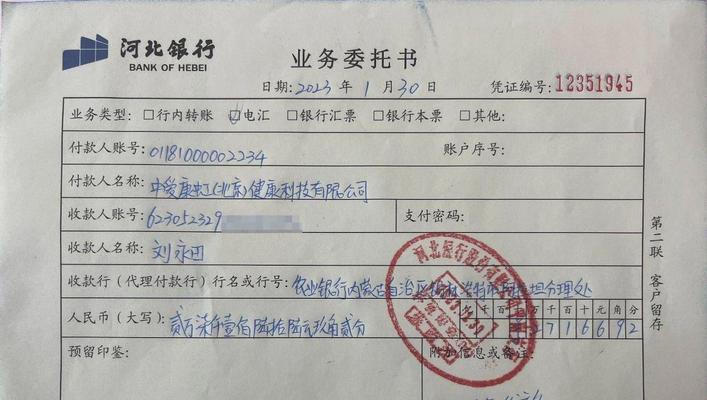 河北银行
BANK OF HEBEI
业务委托书
日期: 2023 年 1 月 30 日 凭证编号: 12351945
业务类型: □行内转账 ☑电汇 □银行汇票 □银行本票 □其他:
付款人账号: 01181000002234 账户序号:
付款人名称: 中爱康虹(北京)健康科技有限公司
收款人账号: 623052329 支付密码:
收款人名称: 刘永田
收款行（代理付款行）行名或行号: 农业银行内蒙古自治区锡林浩特市 分理处
千 百 十 元 角 分
人民币（大写）: 贰万柒仟壹佰陆拾陆元玖角贰分 7 1 6 6 9 2
预留印鉴: 附加信息或备注:
第二联 客户留存